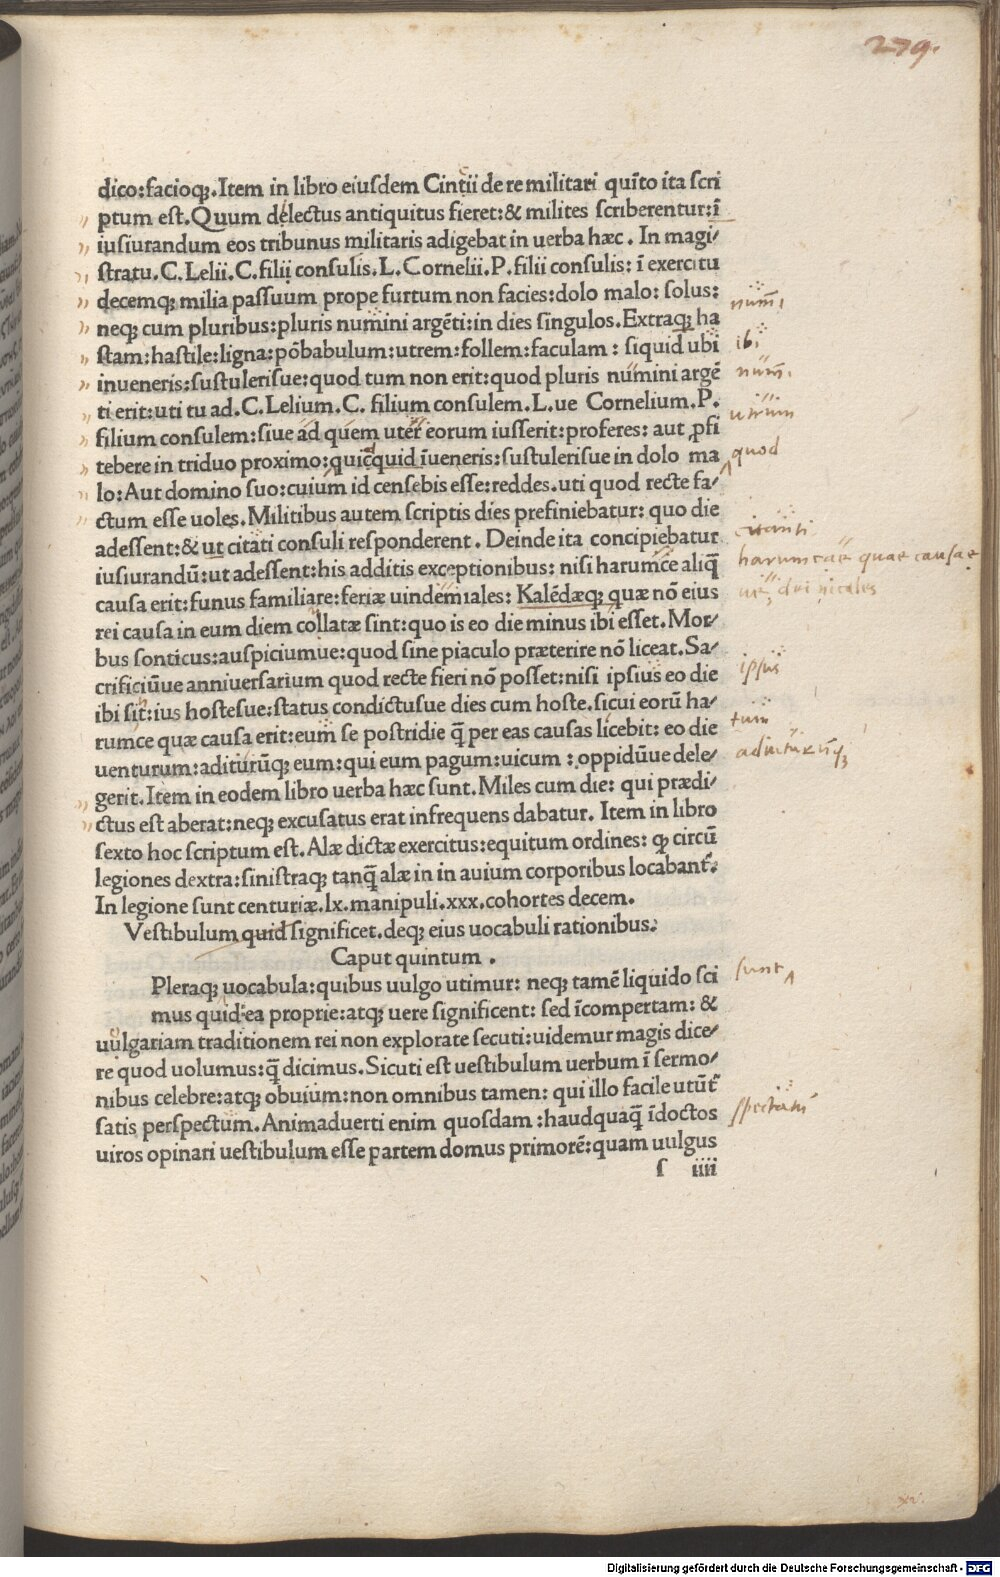 279.
dico:facioqꝫ.Item in libro eiusdem Cintii de re militari quīto ita scri
ptum est.Quum delectus antiquitus fieret:& milites scriberentur:ī
iusiurandum eos tribunus militaris adigebat in uerba hæc. In magi/
stratu.C.Lelii.C.filii consulis.L.Cornelii.P.filii consulis:ī exercitu
decemqꝫ milia passuum prope furtum non facies:dolo malo:solus:
neqꝫ cum pluribus:pluris numini argēti:in dies singulos.Extraqꝫ ha
stam:hastile:ligna:pōbabulum:utrem:follem:faculam: siquid ubi
inueneris:sustulerisue:quod tum non erit:quod pluris numini argē
ti erit:uti tu ad.C.Lelium.C. filium consulem.L.ue Cornelium.P.
filium consulem:siue ad quem uter eorum iusserit:proferes: aut ꝓfi
tebere in triduo proximo:quicquid īueneris:sustulerisue in dolo ma
lo:Aut domino suo:cuium id censebis esse:reddes.uti quod recte fa/
ctum esse uoles.Militibus autem scriptis dies prefiniebatur: quo die
adessent:& ut citati consuli responderent. Deinde ita concipiebatur
iusiurandū:ut adessent:his additis exceptionibus: nisi harumce aliq̄
causa erit:funus familiare:feriæ uindemiales: Kalēdæqꝫ quæ nō eius
rei causa in eum diem collatæ sint:quo is eo die minus ibi esset.Mor/
bus sonticus:auspiciumue:quod sine piaculo præterire nō liceat.Sa/
crificiūue anniuersarium quod recte fieri nō posset:nisi ipsius eo die
ibi sit:ius hostesue:status condictusue dies cum hoste.sicui eorū ha/
rumce quæ causa erit:eum se postridie q̄ per eas causas licebit: eo die
uenturum:aditurūqꝫ eum:qui eum pagum:uicum :oppidūue dele/
gerit.Item in eodem libro uerba hæc sunt.Miles cum die: qui prædi/
ctus est aberat:neqꝫ excusatus erat infrequens dabatur. Item in libro
sexto hoc scriptum est.Alæ dictæ exercitus:equitum ordines: qꝫ circū
legiones dextra:sinistraqꝫ tanq̄ alæ in in auium corporibus locabant̄.
In legione sunt centuriæ.lx.manipuli.xxx.cohortes decem.
Vestibulum quid significet.deqꝫ eius uocabuli rationibus.
Caput quintum.
Pleraqꝫ uocabula:quibus uulgo utimur: neqꝫ tamē liquido sci
mus quid ea proprie:atqꝫ uere significent: sed īcompertam: &
uulgariam traditionem rei non explorate secuti:uidemur magis dice/
re quod uolumus:q̄ dicimus.Sicuti est uestibulum uerbum ī sermo/
nibus celebre:atqꝫ obuium:non omnibus tamen: qui illo facile utūt̄
satis perspectum.Animaduerti enim quosdam :haudquaq̄ īdoctos
uiros opinari uestibulum esse partem domus primorē:quam uulgus
s iiii
ibi
utrium
quod
citanti
harumcae quae causae
ipsius
tum
sunt
Digitalisierung gefördert durch die Deutsche Forschungsgemeinschaft - DFG